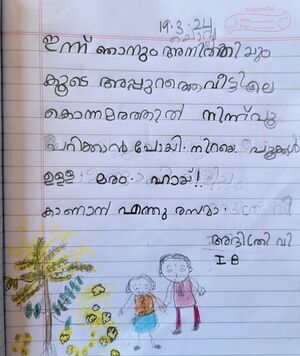 classmate
19.3.24
ചൊവ്വ
ഇന്ന് ഞാനും അനിർത്തിയും
കൂടെ അപ്പുറത്തെവീട്ടിലെ
കൊന്നമരത്തിൽ നിന്ന്പൂ
പറിക്കാൻപോയി. നിറയെ പൂക്കൾ
ഉള്ള മരം. ഹായ്!!
കാണാൻ എന്തു രസമാ
അദ്വിതി വി
I B